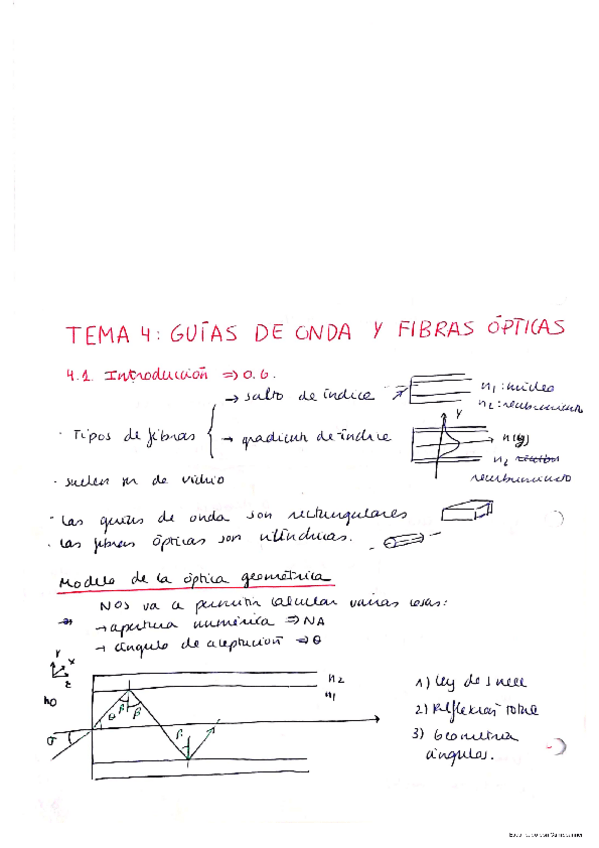 TEMA 4: GUÍAS DE ONDA Y FIBRAS ÓPTICAS
4.1. Introducción ⇒ O.G.
→ salto de índice
n₁: núcleo
n₂: recubrimiento
· Tipos de fibras
→ gradiente de índice
y
n(y)
n₂
recubrimiento
· suelen ser de vidrio
· Las guías de onda son rectangulares
· Las fibras ópticas son cilíndricas.
Modelo de la óptica geométrica
Nos va a permitir calcular varias cosas:
→ apertura numérica ⇒ NA
→ ángulo de aceptación ⇒ θ
Y
X
Z
n₂
n₁
n0
θ
β
β
β
σ
1) Ley de snell
2) Reflexión total
3) Geometría
ángulos.